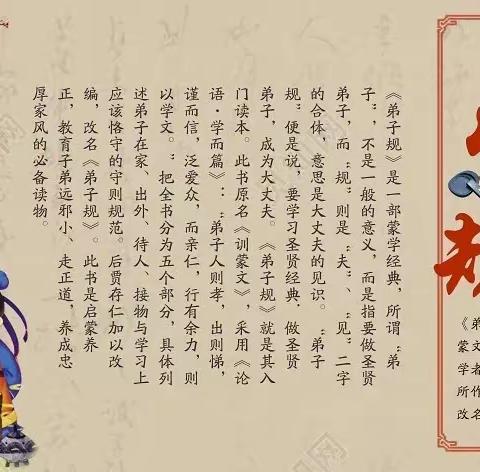 《弟子规》是一部蒙学经典，所谓“弟
子”，不是一般的意义，而是指要做圣贤
弟子，而“规”则是“夫”、“见”二字
的合体，意思是大丈夫的见识。“弟子
规”便是说，要学习圣贤经典．做圣贤
弟子，成为大丈夫。《弟子规》就是其入
门读本。此书原名《训蒙文》，采用《论
语·学而篇》：“弟子人则孝，出则悌，
谨而信，泛爱众，而亲仁，行有余力，则
以学文。”把全书分为五个部分，具体列
述弟子在家、出外、待人、接物与学习上
应该恪守的守则规范。后贾存仁加以改
编，改名《弟子规》。此书是启蒙养
正，教育子弟远邪小、走正道，养成忠
厚家风的必备读物。
《弟
蒙文
学者
所作
改名